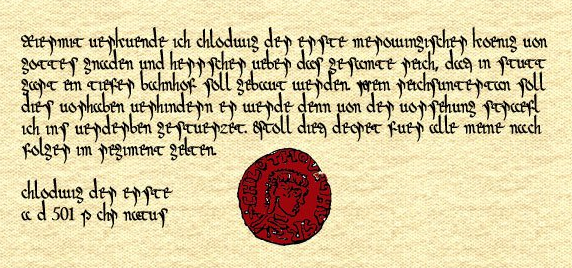 Hiermit verkuende ich chlodwig der erste merowingischer koenig von
gottes gnaden und herrscher ueber das gesamte reich, dass in stutt
gart ein tiefer bahnhof soll gebaut werden. Kein reichsuntertan soll
dies vorhaben verhindern er werde denn von der vorsehung straefl
ich ins verderben gestuerzet. Soll dies decret fuer alle meine nach
folger im regiment gelten.
chlodwig der erste
a d 501 p chr natus